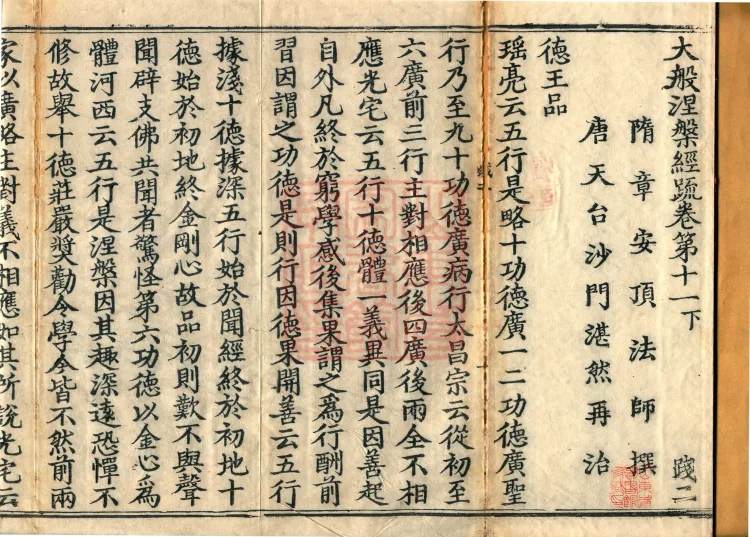 大般涅槃經䟽卷第十一下 踐二
隋章安頂法師撰
唐天台沙門湛然再治
德王品
瑶亮云五行是略十功德廣一二功德廣聖
行乃至九十功德廣病行太昌宗云從初至
六廣前三行主對相應後四廣後兩全不相
應光宅云五行十德體一義異同是因善起
自外凡終於窮學感後集果謂之爲行酬前
習因謂之功德是則行因德果開善云五行
據淺十德據深五行始於聞經終於初地十
德始於初地終金剛心故品初則歎不與聲
聞辟支佛共聞者驚怪第六功德以金心爲
體河西云五行是涅槃因其趣深遠恐憚不
修故舉十德莊嚴奬勸令學今皆不然前兩
家以廣略主對義不相應如其所說光宅云